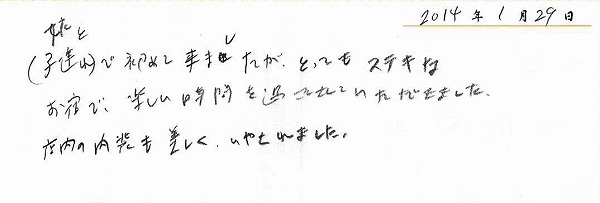 2014年1月29日
妹と
(子連れ)で初めて来ましたが、とってもステキな
お宿で、楽しい時間を過ごさせていただきました。
店内の内装も美しく、いやされました。